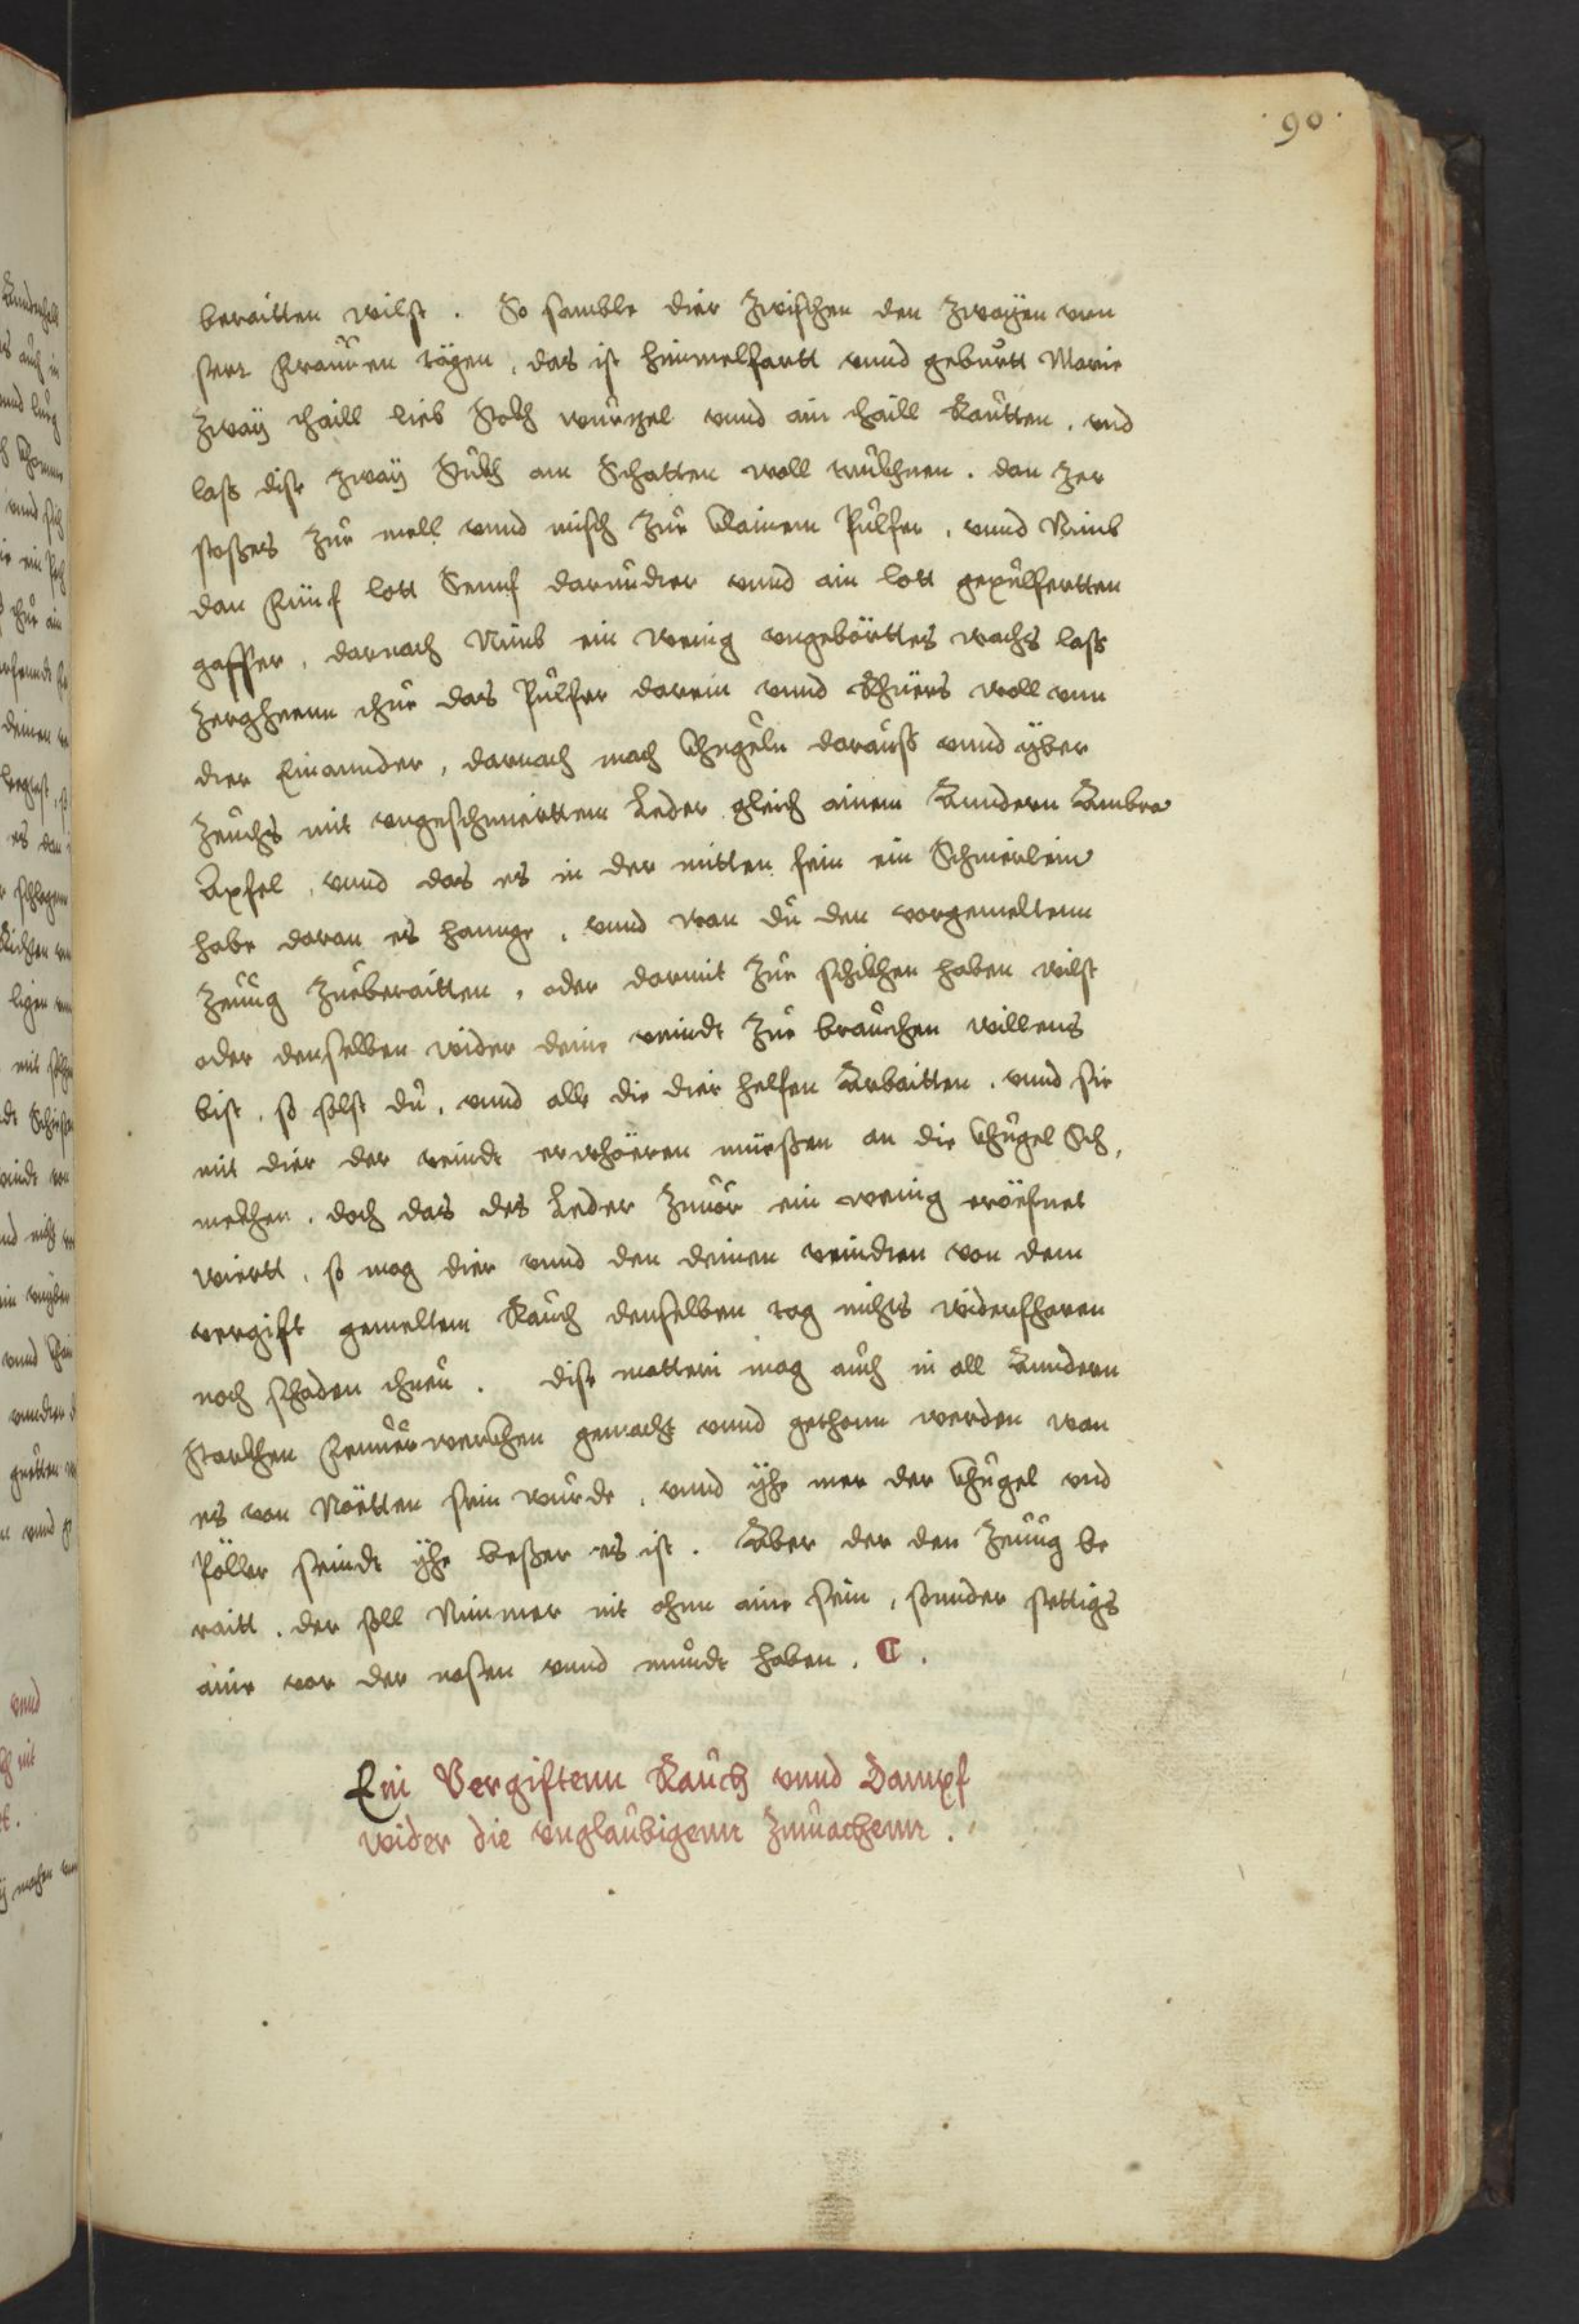 .90.
beraitten wilst. So samble dier Zwischen den Zwayen vnn
sere Frauuen tägen, das ist himmelfartt vnnd geburtt Marie
Zwaÿ thaill lieb Stokh wurzel vnnd ain thaill Rautten, vnd
lass dise zwaÿ Stukh am Schatten woll trukhnen. dan zer
stoßens Zur mell vnnd misch Zur klainem Pulfer, vnnd Nimb
dan Fünf lott Senuf darundter vnnd ain lott gepulfertten
gaffer, darnach Nimb ein wenig vngebörttes wachs lass
Zerghenn thue das Pulfer darein vnnd Rhüers woll vnn
dter Einannder, darnach mach khugeln darauss vnnd yber
Zeuchs mit vngeschmirttem Leder gleich ainem Anndern Ambra
Apfel, vnnd das es in der mitten fein ein Schnierlein
habe daran es hannge, vnnd wan du den vorgemeltenn
Zeuug Zuberaitten, oder darmit Zue schikhen haben wilst
oder denselben wider deine veindt Zue brauchen willens
bist, so solst du, vnnd alle die dier helfen Arbaitten, vnnd sie
mit dier der veindt erwhören müeßen an die khugel Sch,
mekhen, doch das des Leder Zuuor ein wenig eröefnet
wiertt, so mag dier vnnd den deinen veindten von dem
vergift gemeltem Rauch denselben tag nichts widerfharen
noch schaden thuen. dise matteri mag auch in all Anndern
Starkhen Feuuerwerkhen gemacht vnnd gethonn werden wan
es von Nöetten sein wurde, vnnd ÿhe mer der khugel vnd
Pöller seindt ÿhe beßer es ist. Aber der den Zeuug be
raitt, der soll Nimmer nit ohnn aine sein, sonnder settigs
aine vor der nasen vnnd mundt haben. C.
Ein Vergiftenn Rauch vnnd Dampf
wider die vnglaubigenn Zmuachenn.